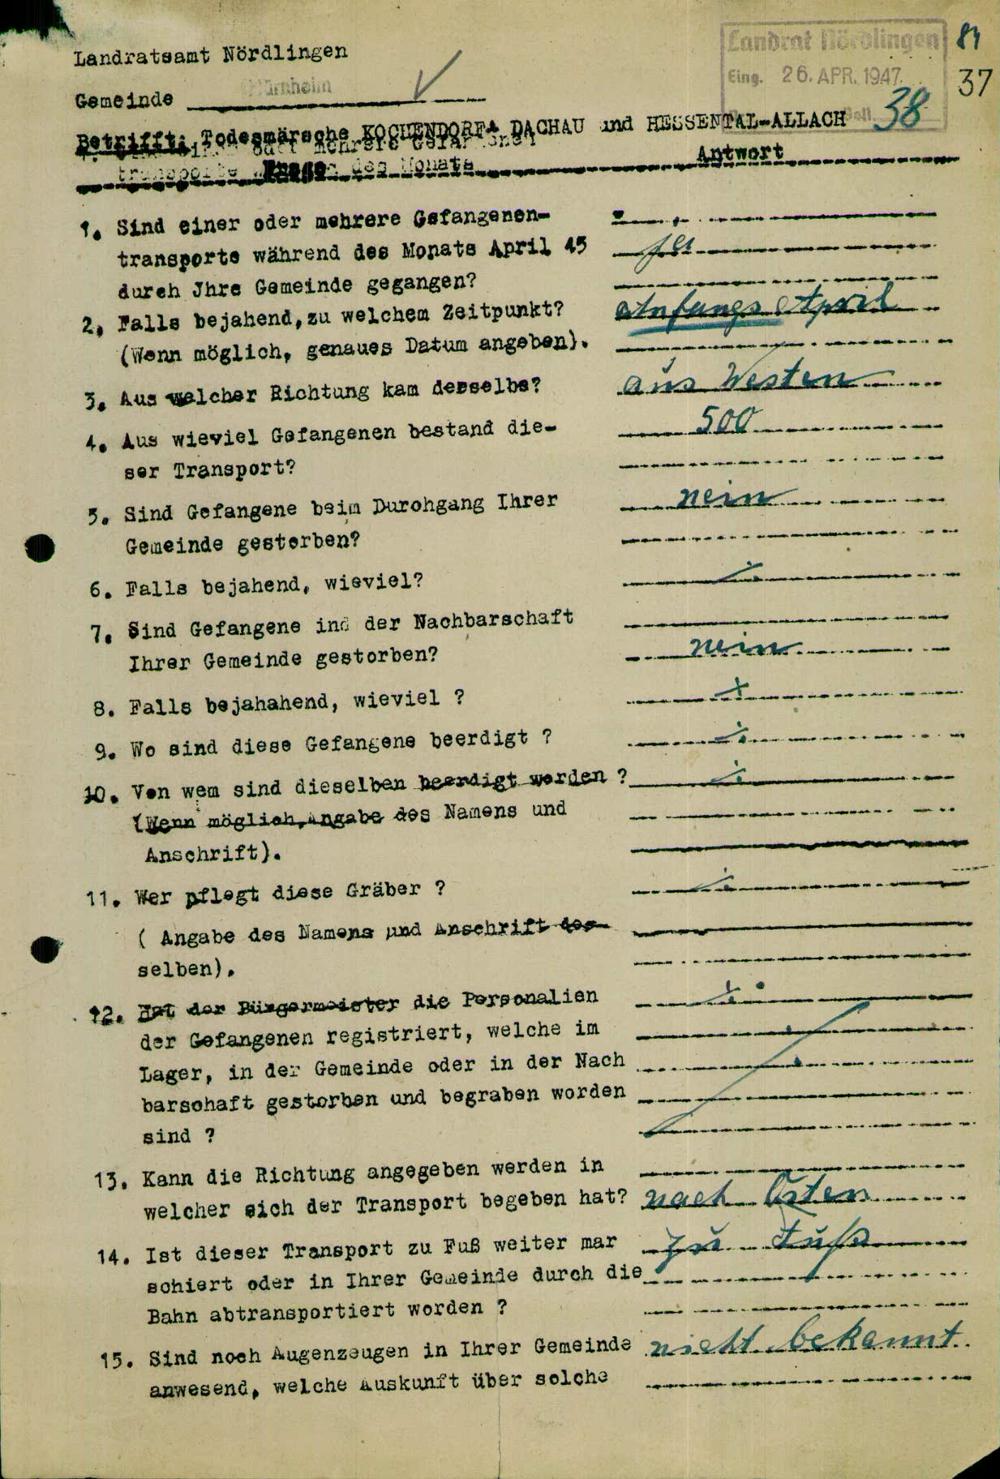 Landratsamt Nördlingen
Landrat Nördlingen
Eing. 26. APR. 1947
84
37
38
Gemeinde Hürnheim
Betrifft: Todesmärsche KOCHENDORF- DACHAU und HESSENTAL-ALLACH
Frage
Antwort
1. Sind einer oder mehrere Gefangenen-
transporte während des Monats April 45
durch Jhre Gemeinde gegangen?
ja
2. Falls bejahend, zu welchem Zeitpunkt?
(Wenn möglich, genaues Datum angeben).
Anfangs April
3. Aus welcher Richtung kam derselbe?
aus Westen
4. Aus wieviel Gefangenen bestand die-
ser Transport?
500
5. Sind Gefangene beim Durchgang Ihrer
Gemeinde gestorben?
nein
6. Falls bejahend, wieviel?
7. Sind Gefangene in der Nachbarschaft
Ihrer Gemeinde gestorben?
nein
8. Falls bejahahend, wieviel ?
9. Wo sind diese Gefangene beerdigt ?
10. Von wem sind dieselben beerdigt worden ?
(Wenn möglich, Angabe des Namens und
Anschrift).
11. Wer pflegt diese Gräber ?
( Angabe des Namens und Anschrift des-
selben).
12. Hat der Bürgermeister die Personalien
der Gefangenen registriert, welche im
Lager, in der Gemeinde oder in der Nach
barschaft gestorben und begraben worden
sind ?
13. Kann die Richtung angegeben werden in
welcher sich der Transport begeben hat?
nach Osten
14. Ist dieser Transport zu Fuß weiter mar
schiert oder in Ihrer Gemeinde durch die
Bahn abtransportiert worden ?
zu Fuß
15. Sind noch Augenzeugen in Ihrer Gemeinde
anwesend, welche Auskunft über solche
nicht bekannt.